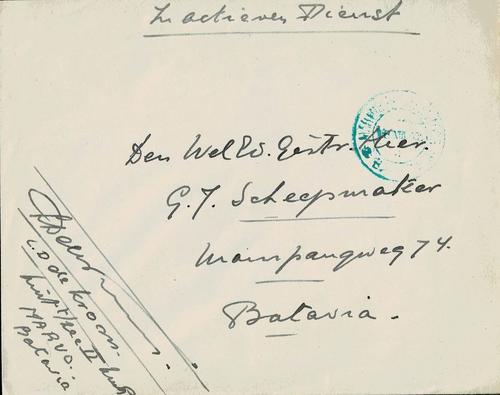 In actieven Dienst
Den WelEd. Gestr. Heer.
G. J. Scheepmaker
Mampangweg 74.
Batavia.
L. D de Kroon.
MARVO.
Batavia